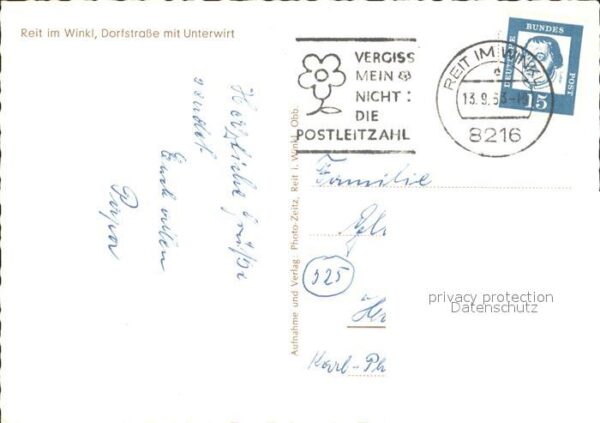 Reit im Winkl, Dorfstraße mit Unterwirt
VERGISS
MEIN
NICHT:
DIE
POSTLEITZAHL
REIT IM WINKL
13.9.63-18
8216
DEUTSCHE BUNDES POST
15
Herzliche Grüße
sendet
Euch allen
Papa
Aufnahme und Verlag Photo-Zeitz, Reit i. Winkl, Obb.
Familie
325
Karl-
privacy protection
Datenschutz